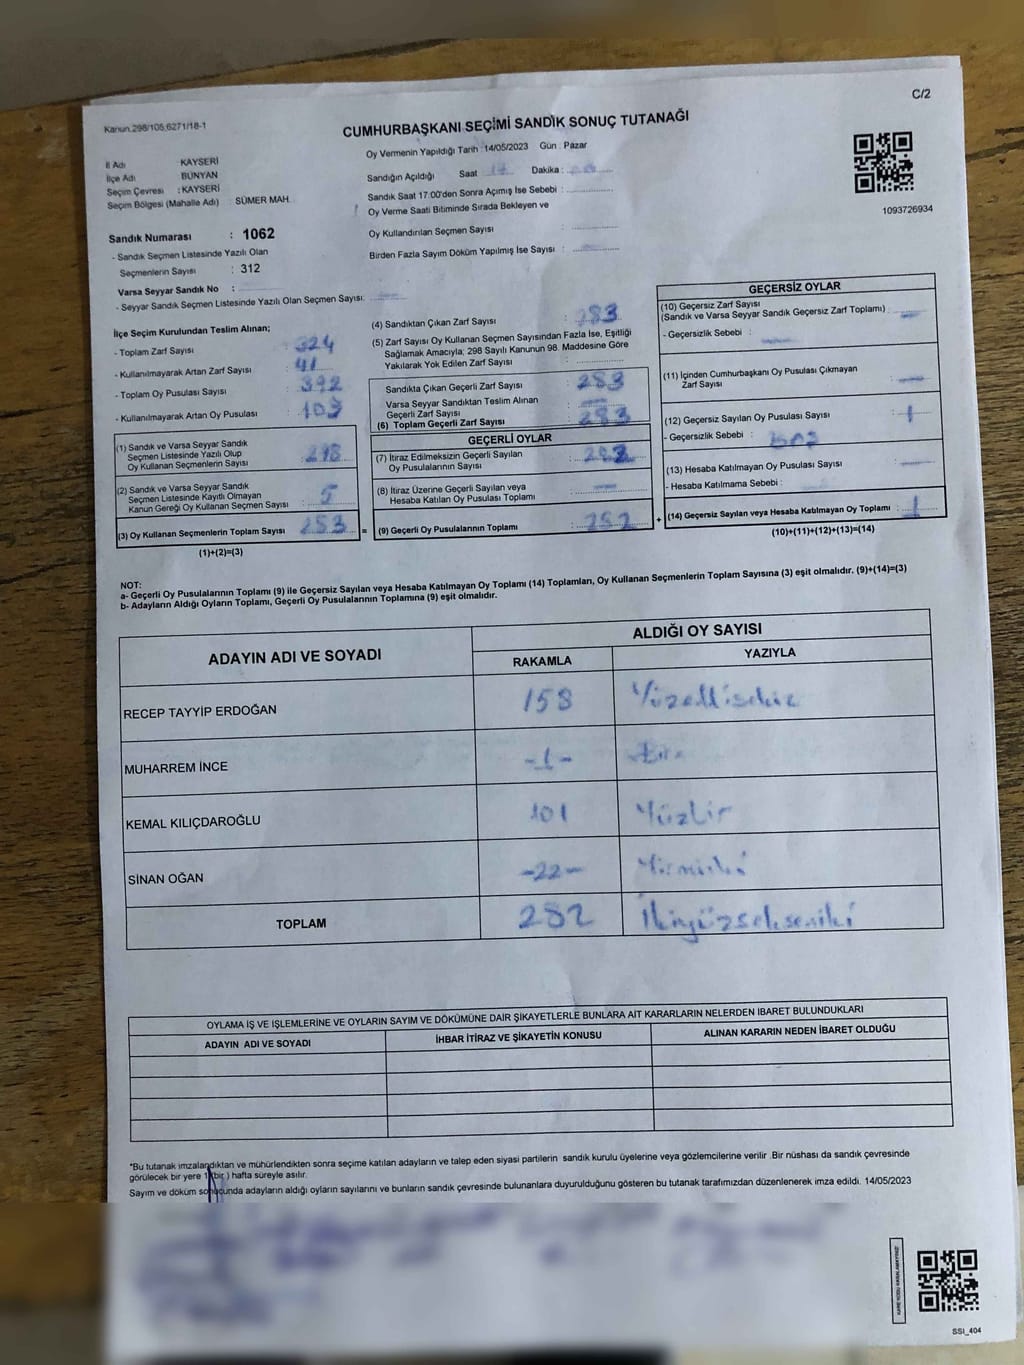 C/2
Kanun.298/105,6271/18-1
CUMHURBAŞKANI SEÇİMİ SANDIK SONUÇ TUTANAĞI
İl Adı : KAYSERİ
İlçe Adı : BÜNYAN
Seçim Çevresi : KAYSERİ
Seçim Bölgesi (Mahalle Adı) : SÜMER MAH.
Oy Vermenin Yapıldığı Tarih : 14/05/2023 Gün : Pazar
Sandığın Açıldığı Saat : 17 Dakika :
Sandık Saat 17:00'den Sonra Açımış İse Sebebi :
Oy Verme Saati Bitiminde Sırada Bekleyen ve
Oy Kullandırılan Seçmen Sayısı :
Birden Fazla Sayım Döküm Yapılmış İse Sayısı :
1093726934
Sandık Numarası : 1062
- Sandık Seçmen Listesinde Yazılı Olan
Seçmenlerin Sayısı : 312
Varsa Seyyar Sandık No :
- Seyyar Sandık Seçmen Listesinde Yazılı Olan Seçmen Sayısı:
İlçe Seçim Kurulundan Teslim Alınan;
- Toplam Zarf Sayısı : 324
- Kullanılmayarak Artan Zarf Sayısı : 41
- Toplam Oy Pusulası Sayısı : 392
- Kullanılmayarak Artan Oy Pusulası :
(1) Sandık ve Varsa Seyyar Sandık
Seçmen Listesinde Yazılı Olup
Oy Kullanan Seçmenlerin Sayısı :
(2) Sandık ve Varsa Seyyar Sandık
Seçmen Listesinde Kayıtlı Olmayan
Kanun Gereği Oy Kullanan Seçmen Sayısı : 5
(3) Oy Kullanan Seçmenlerin Toplam Sayısı : 283
(1)+(2)=(3)
(4) Sandıktan Çıkan Zarf Sayısı : 283
(5) Zarf Sayısı Oy Kullanan Seçmen Sayısından Fazla İse, Eşitliği
Sağlamak Amacıyla; 298 Sayılı Kanunun 98. Maddesine Göre
Yakılarak Yok Edilen Zarf Sayısı :
Sandıkta Çıkan Geçerli Zarf Sayısı : 283
Varsa Seyyar Sandıktan Teslim Alınan
Geçerli Zarf Sayısı :
(6) Toplam Geçerli Zarf Sayısı : 283
GEÇERLİ OYLAR
(7) İtiraz Edilmeksizin Geçerli Sayılan
Oy Pusulalarının Sayısı : 282
(8) İtiraz Üzerine Geçerli Sayılan veya
Hesaba Katılan Oy Pusulası Toplamı :
= (9) Geçerli Oy Pusulalarının Toplamı : 282
GEÇERSİZ OYLAR
(10) Geçersiz Zarf Sayısı
(Sandık ve Varsa Seyyar Sandık Geçersiz Zarf Toplamı) :
- Geçersizlik Sebebi :
(11) İçinden Cumhurbaşkanı Oy Pusulası Çıkmayan
Zarf Sayısı :
(12) Geçersiz Sayılan Oy Pusulası Sayısı : 1
- Geçersizlik Sebebi :
(13) Hesaba Katılmayan Oy Pusulası Sayısı :
- Hesaba Katılmama Sebebi :
+ (14) Geçersiz Sayılan veya Hesaba Katılmayan Oy Toplamı : 1
(10)+(11)+(12)+(13)=(14)
NOT:
a- Geçerli Oy Pusulalarının Toplamı (9) ile Geçersiz Sayılan veya Hesaba Katılmayan Oy Toplamı (14) Toplamları, Oy Kullanan Seçmenlerin Toplam Sayısına (3) eşit olmalıdır. (9)+(14)=(3)
b- Adayların Aldığı Oyların Toplamı, Geçerli Oy Pusulalarının Toplamına (9) eşit olmalıdır.
ADAYIN ADI VE SOYADI
ALDIĞI OY SAYISI
RAKAMLA YAZIYLA
RECEP TAYYİP ERDOĞAN 158 Yüzellisekiz
MUHARREM İNCE -1- Bir
KEMAL KILIÇDAROĞLU 101 Yüzbir
SİNAN OĞAN -22- Yirmiiki
TOPLAM 282 İkiyüzsekseniki
OYLAMA İŞ VE İŞLEMLERİNE VE OYLARIN SAYIM VE DÖKÜMÜNE DAİR ŞİKAYETLERLE BUNLARA AİT KARARLARIN NELERDEN İBARET BULUNDUKLARI
ADAYIN ADI VE SOYADI İHBAR İTİRAZ VE ŞİKAYETİN KONUSU ALINAN KARARIN NEDEN İBARET OLDUĞU
*Bu tutanak imzalandıktan ve mühürlendikten sonra seçime katılan adayların ve talep eden siyasi partilerin sandık kurulu üyelerine veya gözlemcilerine verilir .Bir nüshası da sandık çevresinde
görülecek bir yere 1 (bir ) hafta süreyle asılır.
Sayım ve döküm sonucunda adayların aldığı oyların sayılarını ve bunların sandık çevresinde bulunanlara duyurulduğunu gösteren bu tutanak tarafımızdan düzenlenerek imza edildi. 14/05/2023
SSI_404